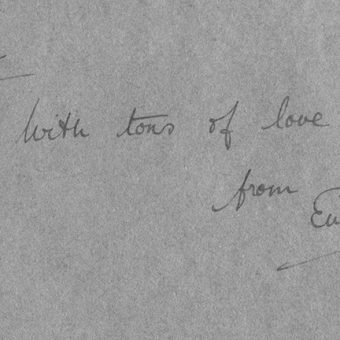 With tons of love
from